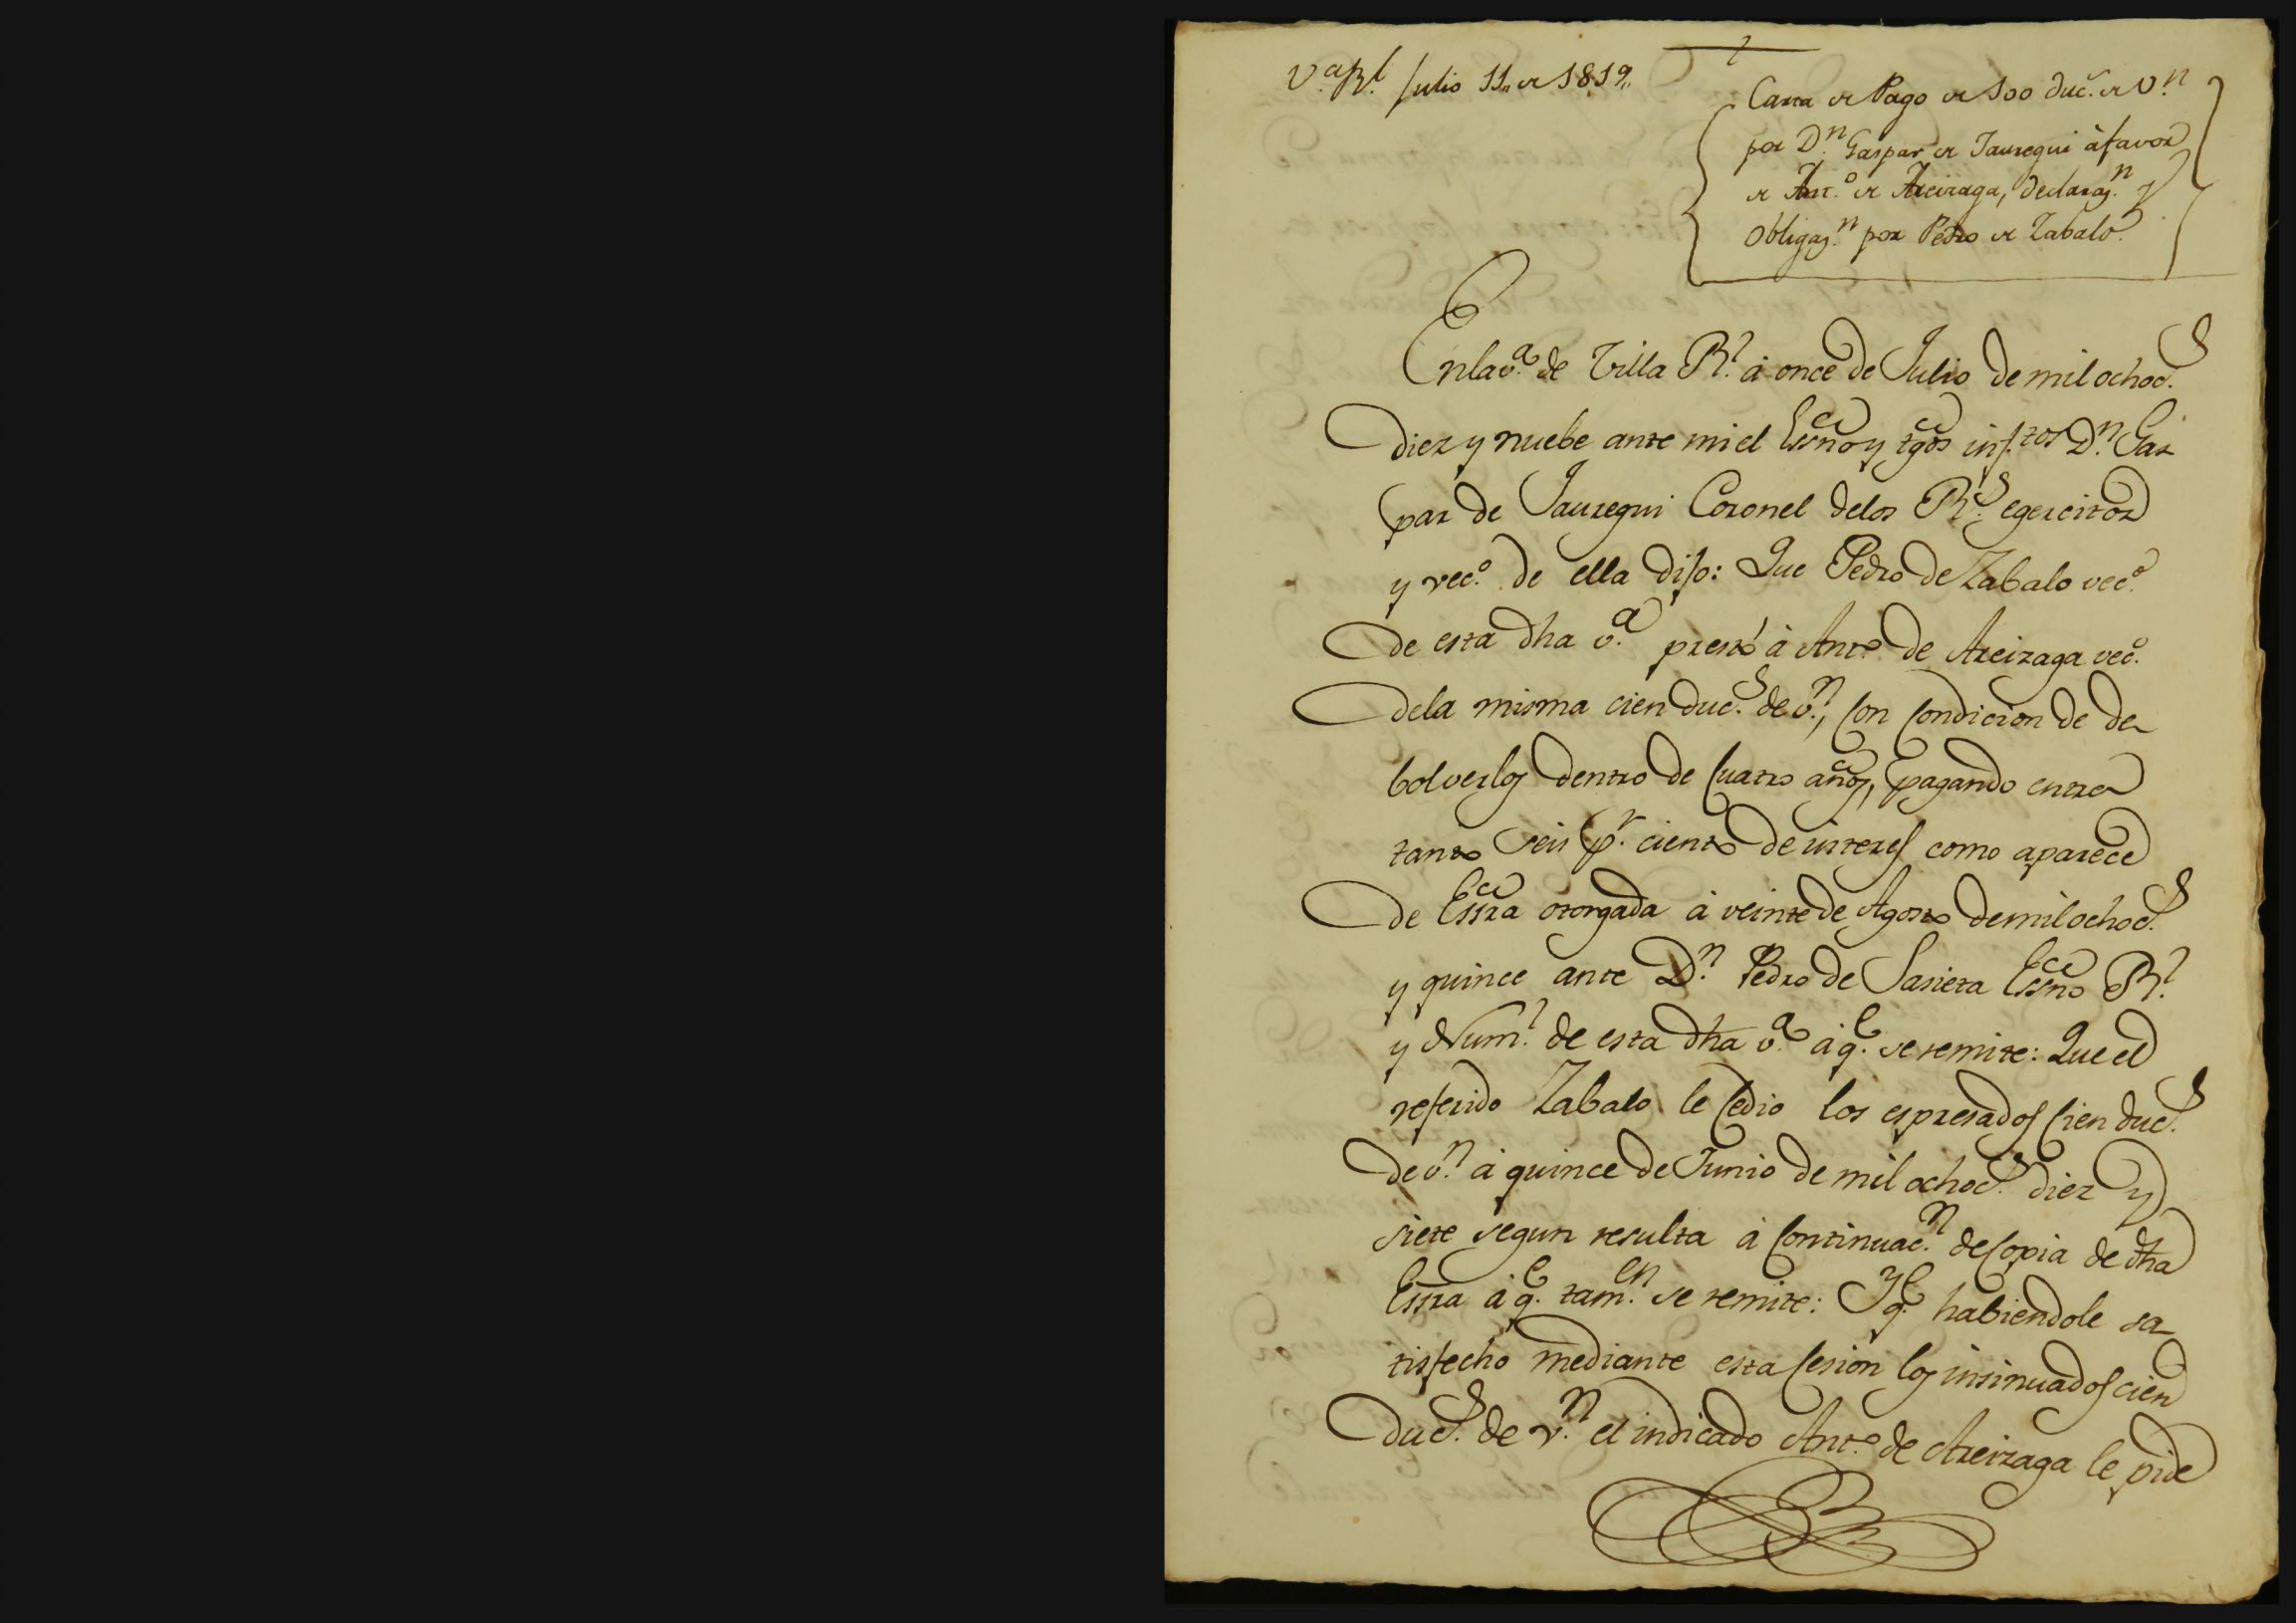 V.ª R.l Julio 11,, de 1819,,
Carta de Pago de 100 duc.s de V.n
por D.n Gaspar de Jauregui à favor
de Ant.o de Areizaga, declaraz.n y
Obligaz.n por Pedro de Zabalo.
En la v.ª de Villa R.l à once de Julio de mil ochoc.s
diez y nuebe ante mi el Essno y tgos inf.tos D.n Gas
par de Jauregui Coronel delos R.s egercitos
y vec.o de ella dijo: Que Pedro de Zabalo vec.o
de esta dha v.ª prestó à Ant.o de Areizaga vec.o
dela misma cien duc.s de v.n, con condicion de de-
bolverlos dentro de cuatro años, pagando entre
tanto seis p.r ciento de interes como aparece
de Essra otorgada à veinte de Agosto de mil ochoc.s
y quince ante D.n Pedro de Sasieta Essno R.l
y Num.l de esta dha v.ª à q.e se remite: Que el
referido Zabalo le cedio los espresados cien duc.s
de v.n à quince de Junio de mil ochoc.s diez y
siete segun resulta à continuac.n de copia de dha
Essra à q.e tam.en se remite: Y q.e habiendole sa-
tisfecho mediante esta cesion los insinuados cien
duc.s de v.n el indicado Ant.o de Areizaga le pide